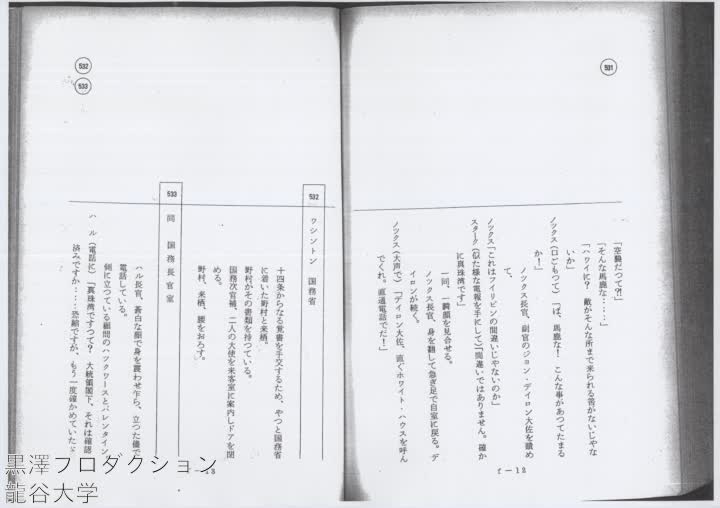 531
「空襲だって?!」
「そんな馬鹿な……」
「ハワイに? 敵がそんな所まで来られる筈がないじゃな
いか」
ノックス(口ごもって)「ば、馬鹿な! こんな事があってたまる
か!」
ノックス長官、副官のジョン・デイロン大佐を顧め
て、
ノックス「これはフイリピンの間違いじゃないのか」
スターク(似た様な電報を手にして)「間違いではありません。確か
に真珠湾です」
一同、一瞬顔を見合せる。
ノックス長官、身を翻して急ぎ足で自室に戻る。デ
イロンが続く。
ノックス(大声で)「デイロン大佐、直ぐホワイト・ハウスを呼ん
でくれ。直通電話でだ!」
f-12
532
533
532 ワシントン 国務省
十四条からなる覚書を手交するため、やっと国務省
に着いた野村と来栖。
野村がその書類を持つている。
国務次官補、二人の大使を来客室に案内しドアを閉
める。
野村、来栖、腰をおろす。
533 同 国務長官室
ハル長官、蒼白な顔で身を震わせ乍ら、立つた儘で
電話している。
側に立つている顧問のハックワースとバレンタイン。
ハル(電話に)「真珠湾ですつて? 大統領閣下、それは確認
済みですか……恐縮ですが、もう一度確かめていたゞ
13
黒澤プロダクション
龍谷大学